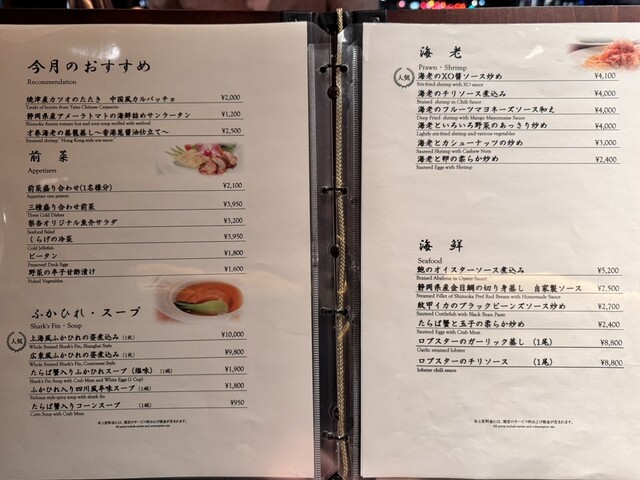 今月のおすすめ
Recommendation
焼津産カツオのたたき 中国風カルパッチョ ¥2,000
Tataki of bonito from Yaizu Chinese Carpaccio
静岡県産アメーラトマトの海鮮詰めサンラータン ¥1,200
才巻海老の蒸籠蒸し～香港葱醤油仕立て～ ¥2,500
Steamed shrimp "Hong Kong style soy sauce"
前菜
Appetizers
前菜盛り合わせ(1名様分) ¥2,100
Appetizer one person
三種盛り合わせ前菜 ¥3,950
Three Cold Dishes
梨杏オリジナル魚介サラダ ¥3,200
Seafood Salad
くらげの冷菜 ¥3,950
Cold Jellyfish
ピータン ¥1,800
Preserved Duck Eggs
野菜の辛子甘酢漬け ¥1,600
Picked Vegetables
ふかひれ・スープ
Shark's Fin・Soup
人気
上海風ふかひれの姿煮込み (1枚) ¥10,000
Whole Braised Shark's Fin, Shanghai Style
広東風ふかひれの姿煮込み (1枚) ¥9,800
Whole Braised Shark's Fin, Cantonese Style
たらば蟹入りふかひれスープ (塩味) (1碗) ¥1,900
Shark's Fin Soup with Crab Meat and White Eggs (1 Cup)
ふかひれ入り四川風辛味スープ (1碗) ¥1,800
Sichuan style spicy soup with shark fin
たらば蟹入りコーンスープ (1碗) ¥950
Corn Soup with Crab Meat
海老
Prawn・Shrimp
人気
海老のXO醤ソース炒め ¥4,100
Stir-fried shrimp with XO sauce
海老のチリソース煮込み ¥4,000
Braised shrimp in Chili Sauce
海老のフルーツマヨネーズソース和え ¥4,000
Deep Fried shrimp with Mango Mayonnaise Sauce
海老といろいろ野菜のあっさり炒め ¥4,000
Lightly stir-fried shrimp and various vegetables
海老とカシューナッツの炒め ¥3,000
Sauteed Shrimp with Cashew Nuts
海老と卵の柔らか炒め ¥2,400
Sauteed Eggs with Shrimp
海鮮
Seafood
鮑のオイスターソース煮込み ¥5,200
Braised Abalone in Oyster Sauce
静岡県産金目鯛の切り身蒸し 自家製ソース ¥7,500
Steamed Fillet of Shizuoka Pref Red Bream with Homemade Sauce
紋甲イカのブラックビーンズソース炒め ¥2,700
Sauteed Cuttlefish with Black Bean Paste
たらば蟹と玉子の柔らか炒め ¥2,400
Sauteed Eggs with Crab Meat
ロブスターのガーリック蒸し (1尾) ¥8,800
Garlic steamed lobster
ロブスターのチリソース (1尾) ¥8,800
lobster chili sauce